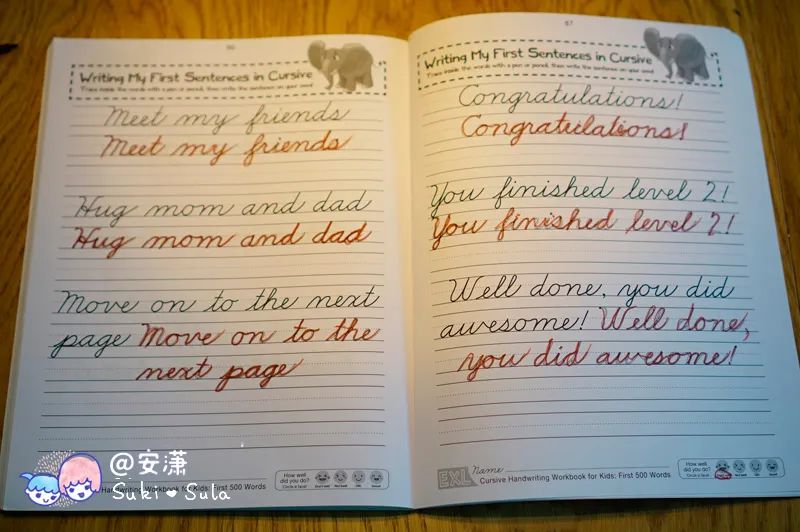 86
Writing My First Sentences in Cursive
Trace inside the words with a pen or pencil, then write the sentence on your own!
Meet my friends
Meet my friends
Hug mom and dad
Hug mom and dad
Move on to the next
page Move on to the
next page
How well
did you do?
Circle it face!
Handwriting Workbook for Kids: First 500 Words
@安潇
Suki♥Sula
87
Writing My First Sentences in Cursive
Trace inside the words with a pen or pencil, then write the sentence on your own!
Congratulations!
Congratulations!
You finished level 2!
You finished level 2!
Well done, you did
awesome! Well done,
you did awesome!
EXL
Name
Cursive Handwriting Workbook for Kids: First 500 Words
How well
did you do?